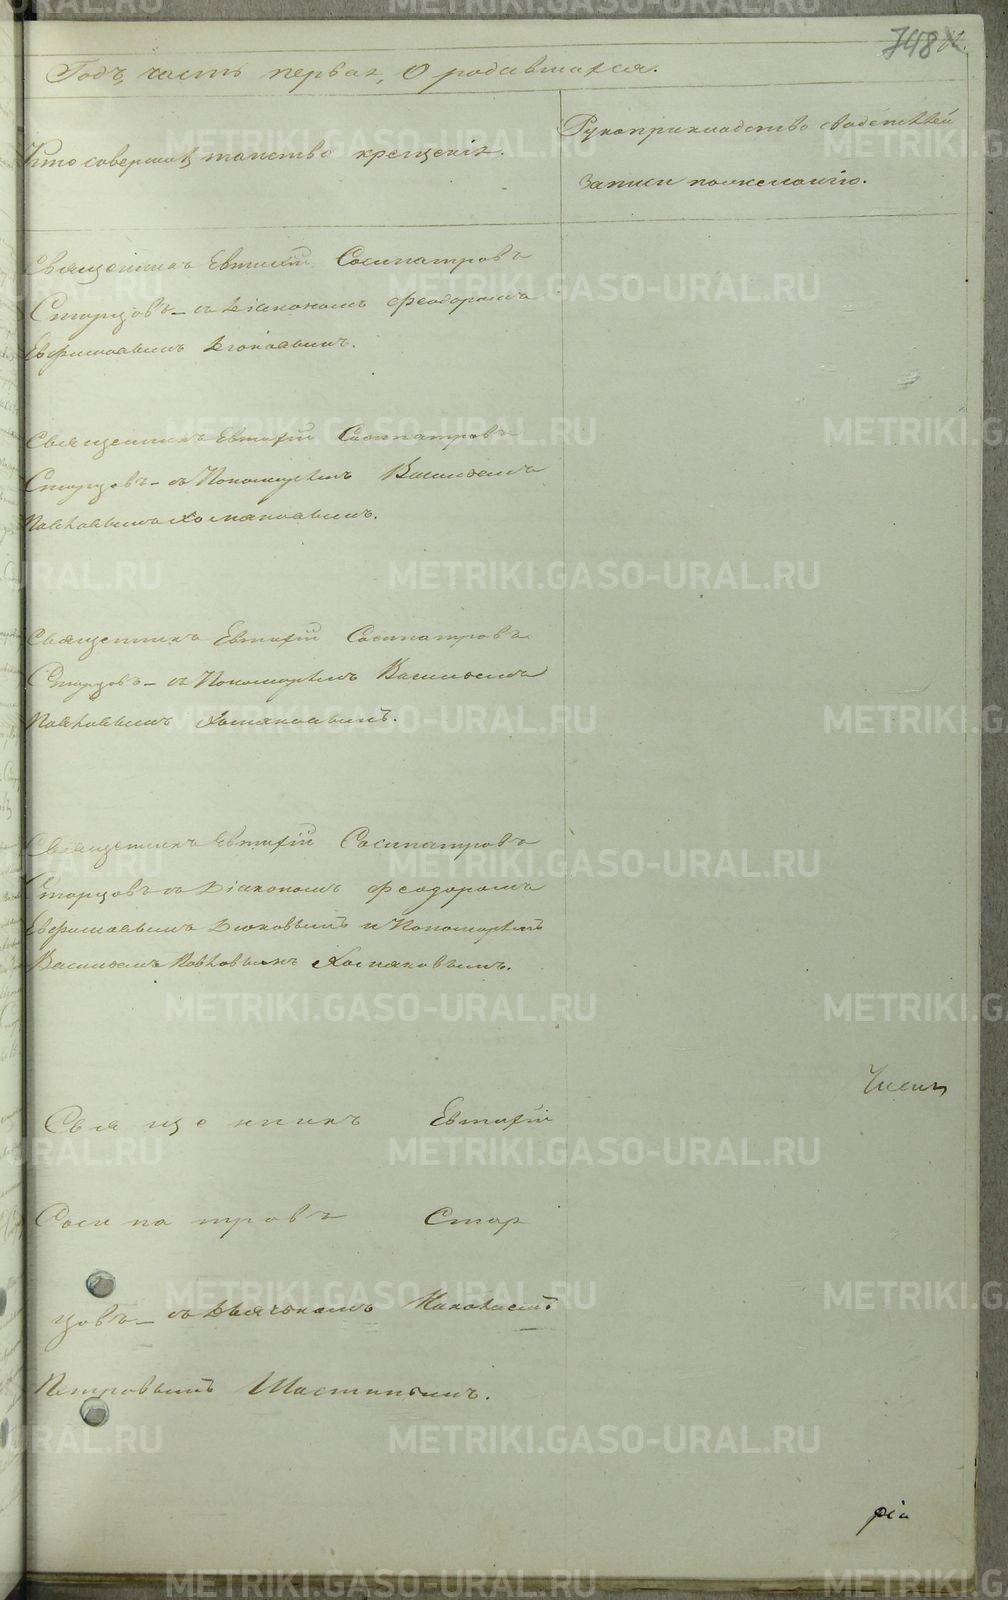 748
Годъ, часть первая, О родившихся.
Кто совершалъ таинство крещенія.
Рукоприкладство свидѣтелей
записи по желанію.
Священникъ Евтихій Сосипатровъ
Старцовъ - съ Діакономъ Феодоромъ
Евфимовымъ
Священникъ Евтихій Сосипатровъ
Старцовъ - съ Пономаремъ Василіемъ
Павловымъ Хомяковымъ.
Священникъ Евтихій Сосипатровъ
Старцовъ - съ Пономаремъ Василіемъ
Павловымъ Хомяковымъ.
Священникъ Евтихій Сосипатровъ
Старцовъ съ Діакономъ Феодоромъ
Евфимовымъ и Пономаремъ
Василіемъ Павловымъ Хомяковымъ.
Священникъ Евтихій
Сосипатровъ Стар
цовъ - съ Дьячькомъ
Петровымъ
METRIKI.GASO-URAL.RU